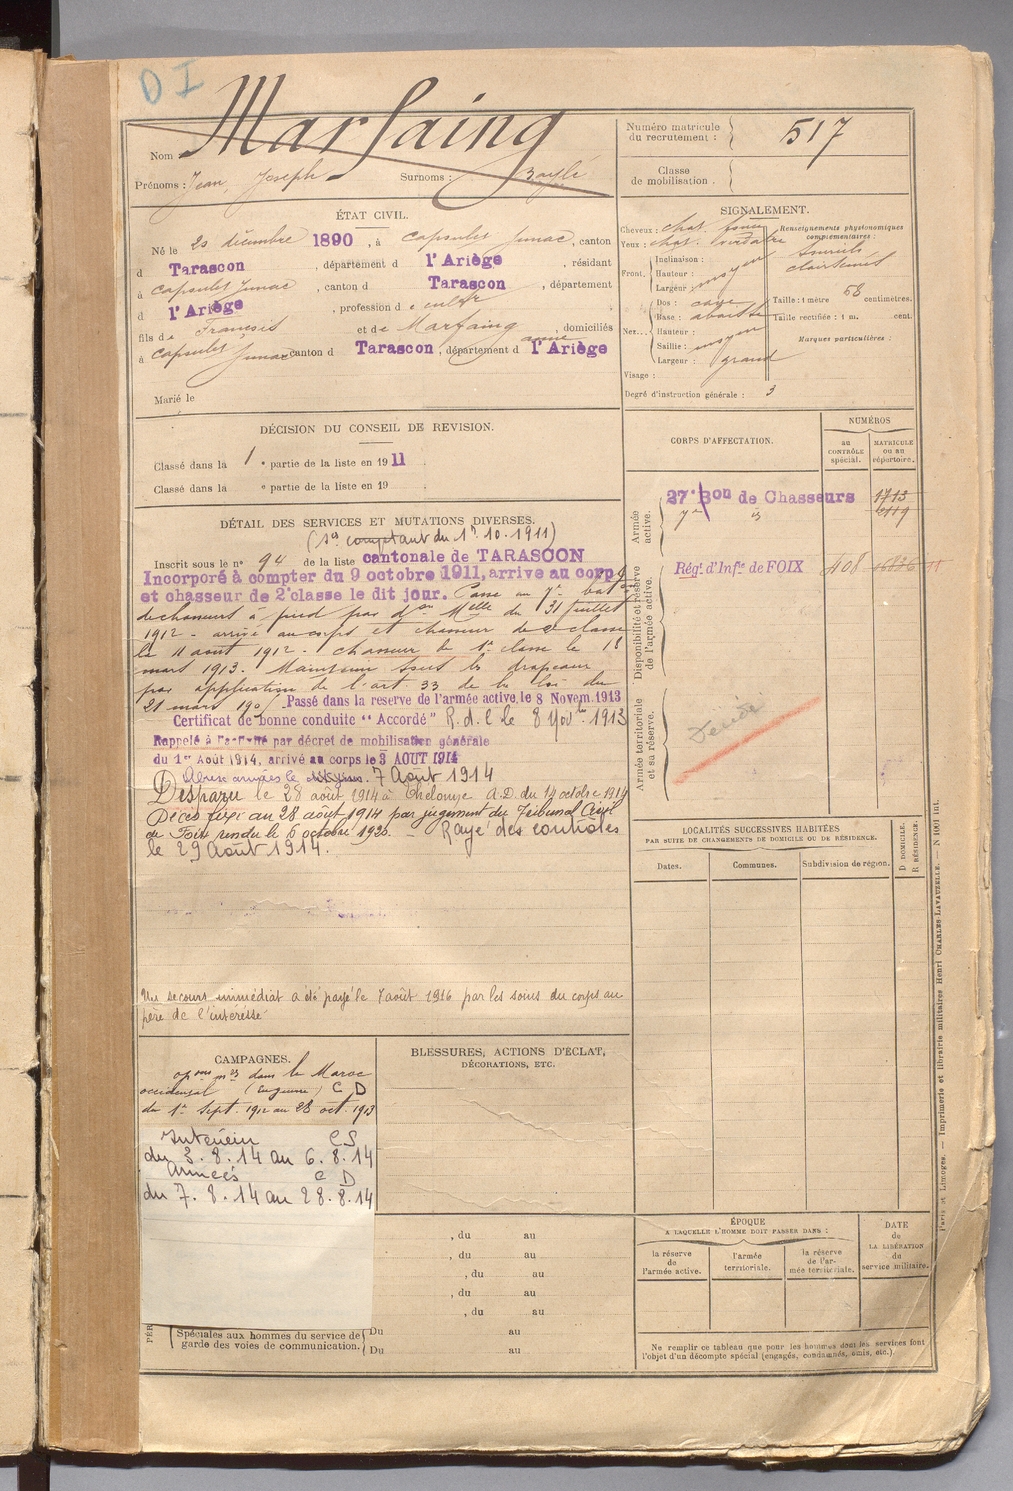 D I
Nom Marfaing
Prénoms : Jean, Joseph Surnoms : Baylé
Numéro matricule
du recrutement : 517
Classe
de mobilisation.
ÉTAT CIVIL.
Né le 20 décembre 1890, à Capsules Junac, canton
d Tarascon, département d l'Ariège, résidant
à Capsules Junac, canton d Tarascon, département
d l'Ariège, profession de cultr
fils de François et de Marfaing anne, domiciliés
à Capsules Junac canton d Tarascon, département d l'Ariège
Marié le
SIGNALEMENT.
Cheveux : chat. foncé
Yeux : chat. verdatre
Front. Inclinaison :
Hauteur : moyen
Largeur :
Nez... Dos : cave
Base : abaissée
Hauteur :
Saillie : moyen
Largeur : grand
Visage :
Degré d'instruction générale : 3
Renseignements physionomiques
complémentaires :
Sourcils
clairsemés
Taille : 1 mètre 58 centimètres.
Taille rectifiée : 1 m. cent.
Marques particulières :
DÉCISION DU CONSEIL DE REVISION.
Classé dans la 1e partie de la liste en 1911
Classé dans la e partie de la liste en 19
CORPS D'AFFECTATION.
NUMÉROS
au
CONTRÔLE
spécial.
MATRICULE
ou au
répertoire.
Armée
active.
27e Bon de Chasseurs 1713
7e is 2119
Disponibilité et réserve
de l'armée active.
Régt d'Infie de FOIX 408
Armée territoriale
et sa réserve.
Décédé
DÉTAIL DES SERVICES ET MUTATIONS DIVERSES.
(Se comptant du 1r 10. 1911)
Inscrit sous le no 94 de la liste cantonale de TARASCON
Incorporé à compter du 9 octobre 1911, arrive au corps
et chasseur de 2e classe le dit jour. Passe au 7e baton
de chasseurs à pied par don Melle du 31 juillet
1912 - arrivé au corps et chasseur de 2e classe
le 11 août 1912 - chasseur de 1e classe le 18
mars 1913. Maintenu sous les drapeaux
par application de l'art 33 de la loi du
21 mars 190 Passé dans la reserve de l'armée active, le 8 Novem. 1913
Certificat de bonne conduite "Accordé" R. d. l le 8 Novbre 1913
Rappelé à l'activité par décret de mobilisation générale
du 1er Août 1914, arrivé au corps le 3 AOUT 1914
Aux armées le 7 Août 1914
Disparu le 28 août 1914 à Thelonne A.D. du 14 octobre 1914
Décès fixé au 28 août 1914 par jugement du Tribunal Civil
de Foix rendu le 6 octobre 1920. — Rayé des contrôles
le 29 Août 1914.
Un secours immédiat a été payé le 7 août 1916 par les soins du corps au
père de l'intéressé
LOCALITÉS SUCCESSIVES HABITÉES
PAR SUITE DE CHANGEMENTS DE DOMICILE OU DE RÉSIDENCE.
Dates. Communes. Subdivision de région. D DOMICILE. R RÉSIDENCE.
CAMPAGNES.
opons mres dans le Maroc
occidental (En guerre) C D
du 1er Sept. 1912 au 28 oct. 1913
Intérieur CS
du 3.8.14 au 6.8.14
Armées C D
du 7.8.14 au 28.8.14
BLESSURES, ACTIONS D'ÉCLAT,
DÉCORATIONS, ETC.
, du au
, du au
, du au
, du au
, du au
Spéciales aux hommes du service de
garde des voies de communication.
Du au
Du au
ÉPOQUE
A LAQUELLE L'HOMME DOIT PASSER DANS :
la réserve
de
l'armée active.
l'armée
territoriale.
la réserve
de l'ar-
mée territoriale.
DATE
de
LA LIBÉRATION
du
service militaire.
Ne remplir ce tableau que pour les hommes dont les services font
l'objet d'un décompte spécial (engagés, condamnés, omis, etc.).
Paris et Limoges. — Imprimerie et librairie militaires Henri CHARLES-LAVAUZELLE. — N 4001 int.